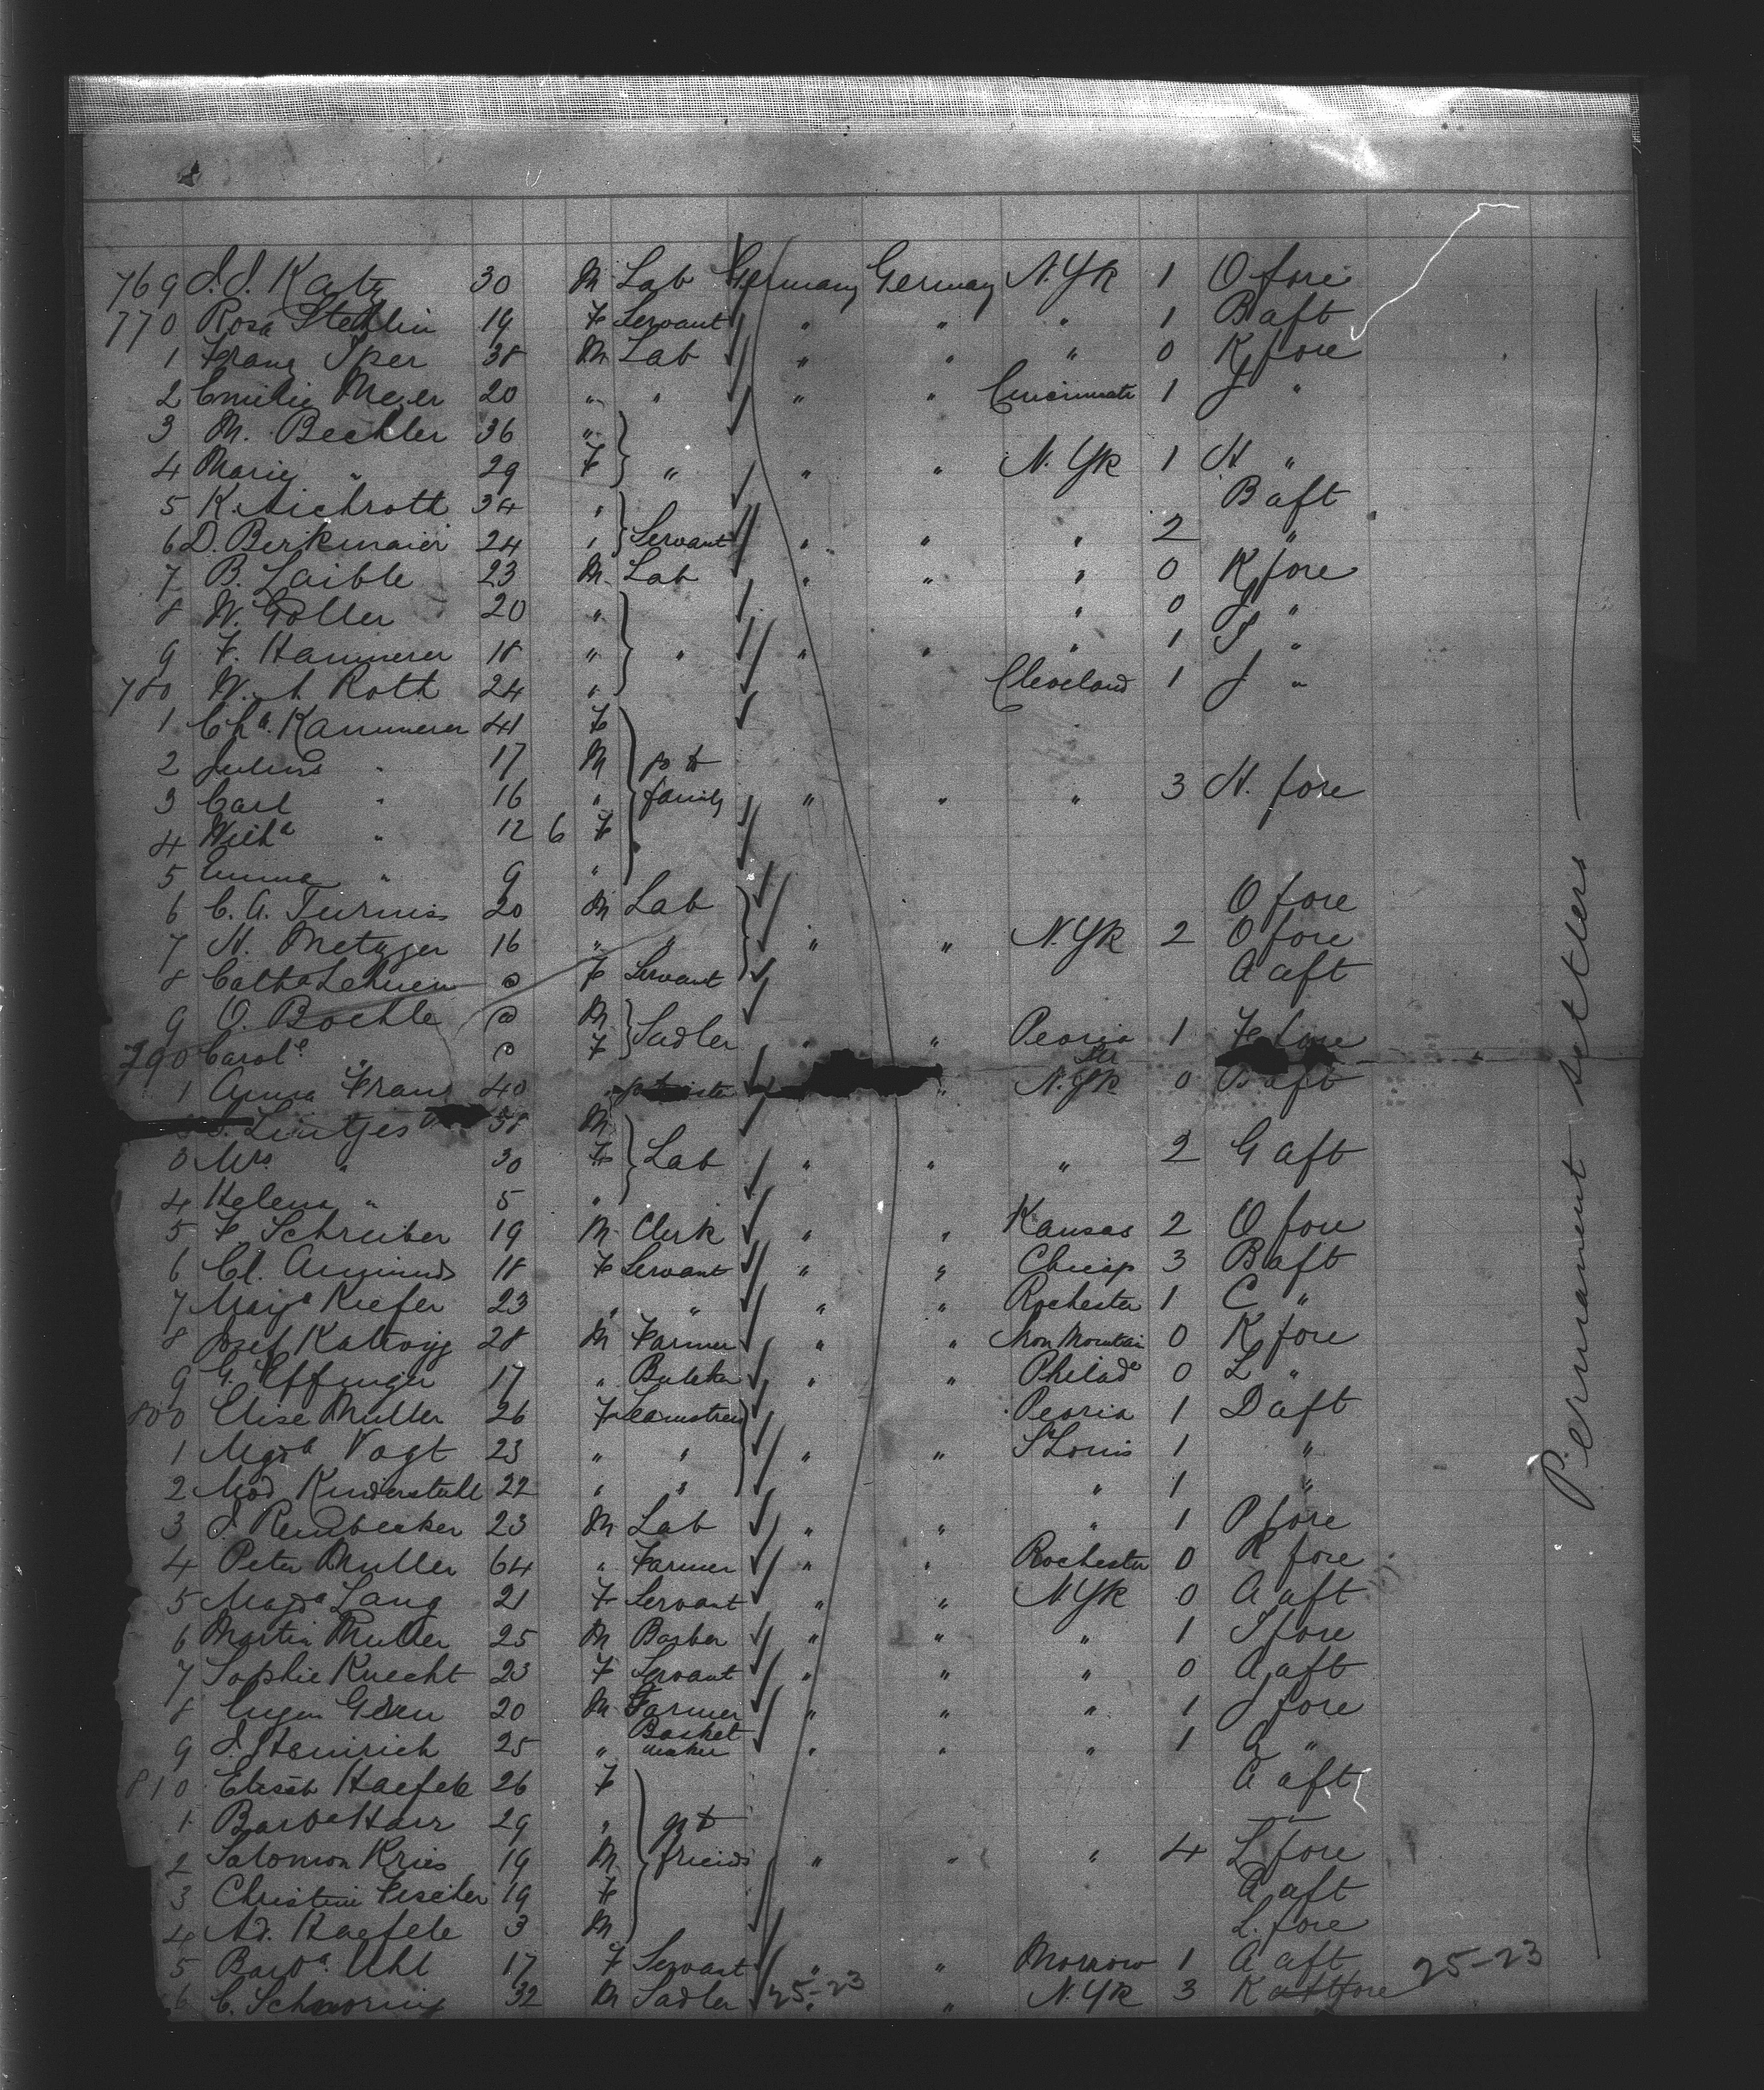 769 J. J. Katz 30 M Lab Germany Germany N. Yk 1 O fore
770 Rosa Stehlin 19 F Servant " " " 1 B aft
1 Franz Iper 38 M Lab " " " 0 K fore
2 Emilie Meier 20 " " " " Cincinnati 1 J "
3 M. Bechler 36 "
4 Marie " 29 F " " " N. Yk 1 H "
5 K. Aichroth 34 " B aft
6 D. Berkmaier 24 " Servant " " " 2 "
7 B. Laible 23 M Lab " " " 0 K fore
8 W. Goller 20 " " 0 J "
9 F. Hammerer 18 " " " " " 1 S "
780 W. A Roth 24 " Cleveland 1 J "
1 Cha. Kammerer 41 F
2 Julius " 17 M pt
3 Carl " 16 " family " " " 3 H. fore
4 Wilha " 12 6 F
5 Emma " 9 "
6 C. A. Turniss 20 M Lab O fore
7 H. Metzger 16 " " " " N. Yk 2 O fore
8 Catha Lehnen F Servant A aft
9 O. Boehle M
790 Carole " F Sadler " " Peoria 1 F fore
1 Anna Frans 40 " " N. Yk 0 B aft
Lintjes 38 M
3 Mrs " 30 F Lab " " " 2 G aft
4 Helena " 5 "
5 F Schreiber 19 M Clerk " " Kansas 2 O fore
6 Cl. 18 F Servant " " Chicip 3 B aft
7 Marga Kiefer 23 " " " " Rochester 1 C "
8 Josef 28 M Farmer " " Iron Mountain 0 K fore
9 G. Effinger 17 " Butcher " " Philade 0 L "
800 Elise Muller 26 F Seamstress Peoria 1 D aft
1 Mgda Vogt 23 " " " " St Louis 1 "
2 Mod Kinderstuhl 22 " " " 1 "
3 J Reinbecker 23 M Lab " " " 1 P fore
4 Peter Muller 64 " Farmer " " Rochester 0 K fore
5 Magda Lang 21 F Servant " " N. Yk 0 A aft
6 Martin Muller 25 M Barber " " " 1 S fore
7 Sophie Knecht 23 F Servant " " " 0 A aft
8 Eugen 20 M Farmer " " " 1 J fore
9 J. Heinrich 25 " Basket maker " " " 1 "
810 Elisab Haefele 26 F A aft
1 Barba Harr 29 " pt "
2 Salomon Kries 19 M friends " " " 4 L fore
3 Christine Fischer 19 F A aft
4 Ad. Haefele 3 M L. fore
5 Barba. Uhl 17 F Servant " " Morrow 1 A aft 25-23
6 C. Schworing 32 M Sadler 25-23 " " N. Yk 3 K aft fore
Permanent settlers